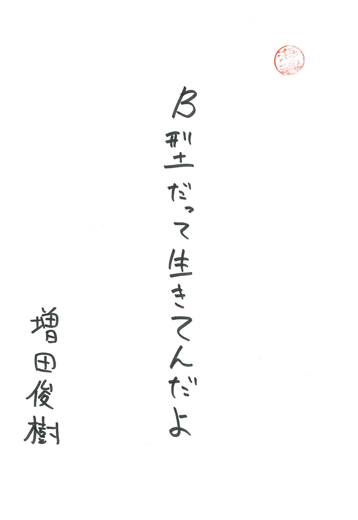 B型だって生きてんだよ
増田俊樹